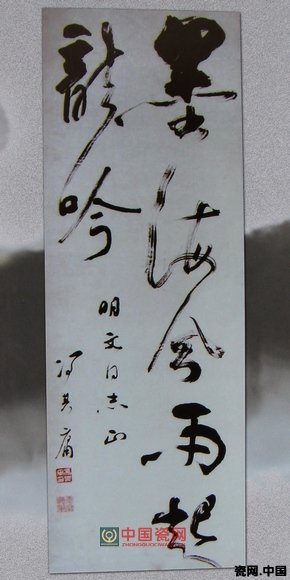 墨海风雨起
龍吟
明文同志正
冯其庸
中国瓷网
ZHONGGUOCIWANG
瓷网.中国